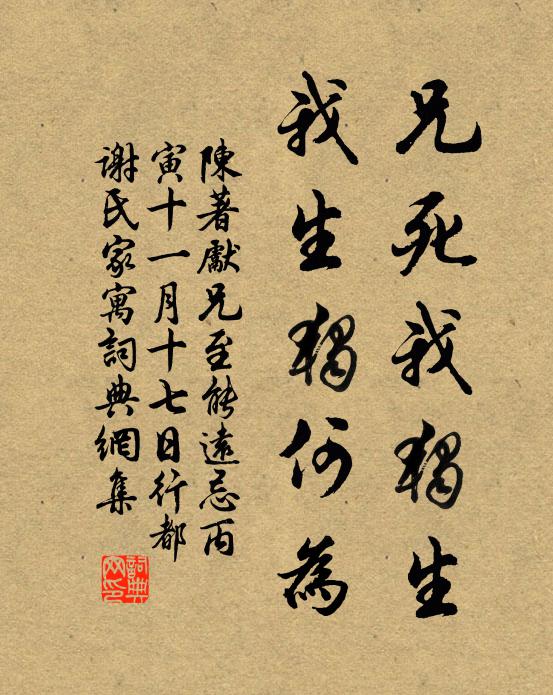 兄死我獨生
我生獨何為
陳著獻兄至能遠忌丙
寅十一月十七日行都
謝氏家寓詞典網集
詞典
网印